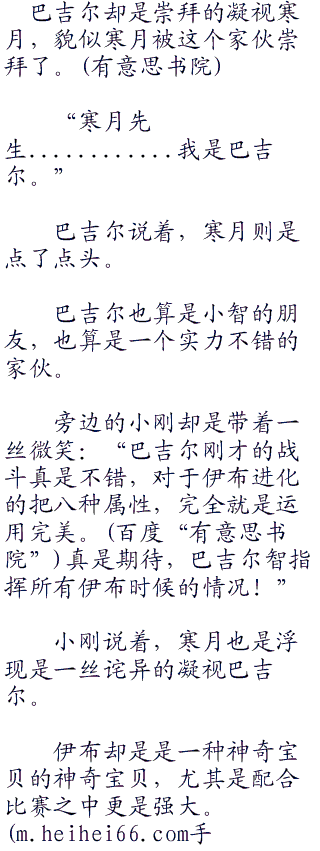 巴吉尔却是崇拜的凝视寒
月，貌似寒月被这个家伙崇
拜了。(有意思书院)
“寒月先
生............我是巴吉
尔。”
巴吉尔说着，寒月则是
点了点头。
巴吉尔也算是小智的朋
友，也算是一个实力不错的
家伙。
旁边的小刚却是带着一
丝微笑：“巴吉尔刚才的战
斗真是不错，对于伊布进化
的把八种属性，完全就是运
用完美。(百度“有意思书
院”)真是期待，巴吉尔智指
挥所有伊布时候的情况！”
小刚说着，寒月也是浮
现是一丝诧异的凝视巴吉
尔。
伊布却是是一种神奇宝
贝的神奇宝贝，尤其是配合
比赛之中更是强大。
(m.heihei66.com手